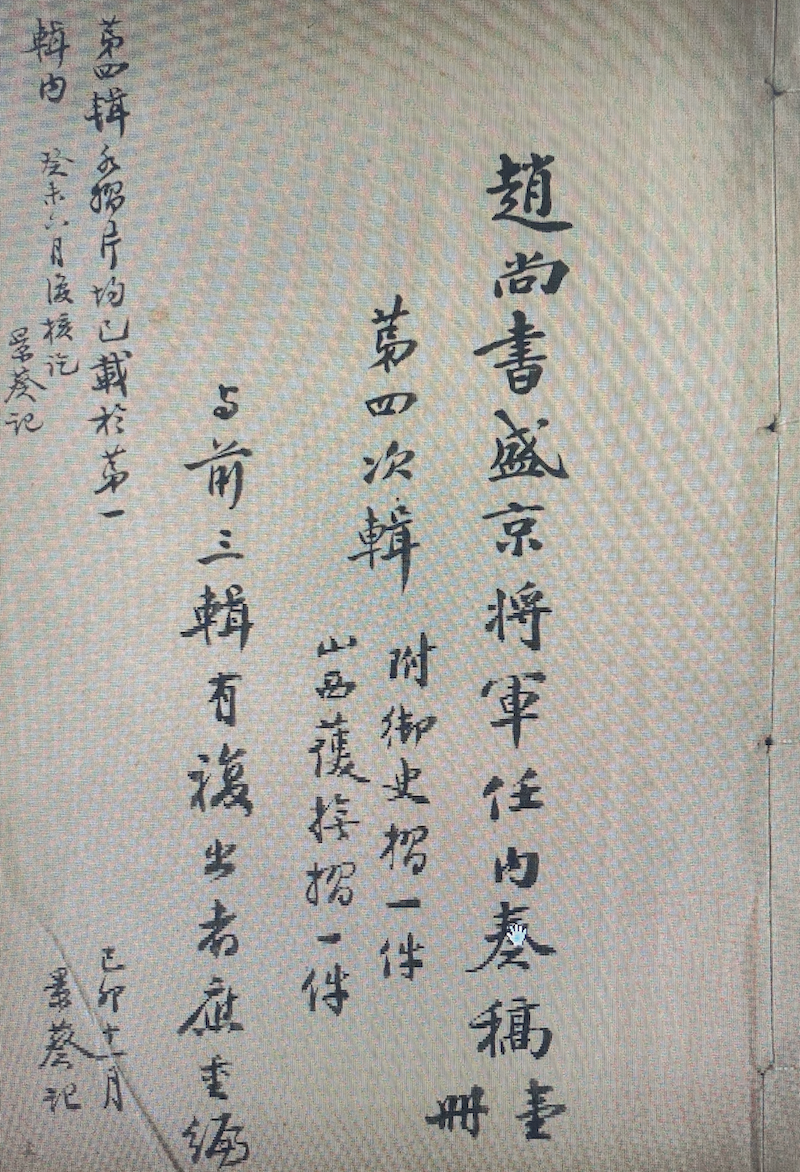 趙尚書盛京將軍任內奏稿壹
冊
第四次輯
附御史摺一件
山西護撫摺一件
与前三輯有複出者應重編
己卯十一月
景葵記
第四輯各摺片均已載於第一
輯内
癸未六月覆核訖
景葵記